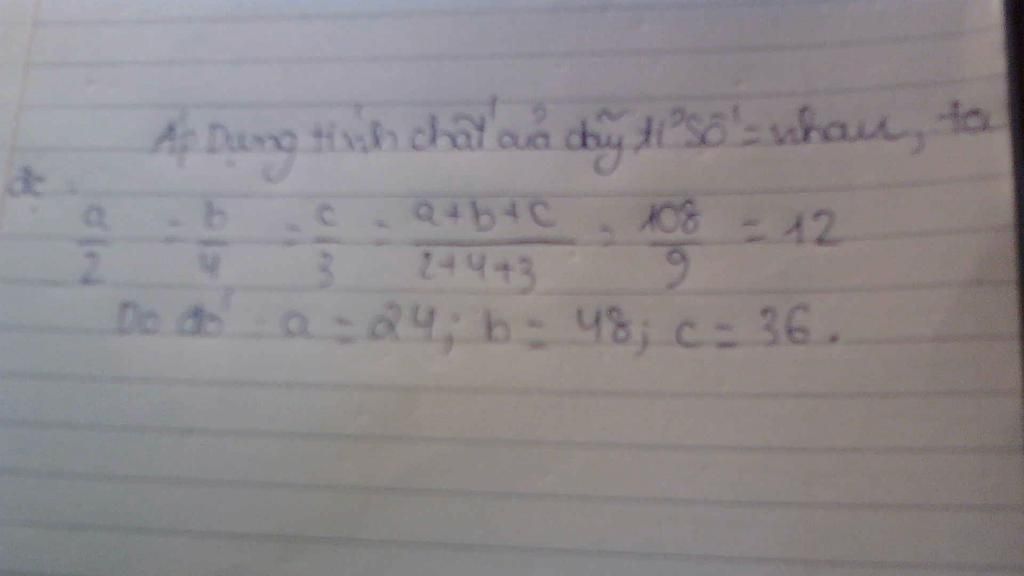 Áp Dụng tính chất của dãy tỉ số = nhau, ta
đc :
a/2 = b/4 = c/3 = a+b+c/2+4+3 = 108/9 = 12
Do đó : a = 24; b = 48; c = 36.